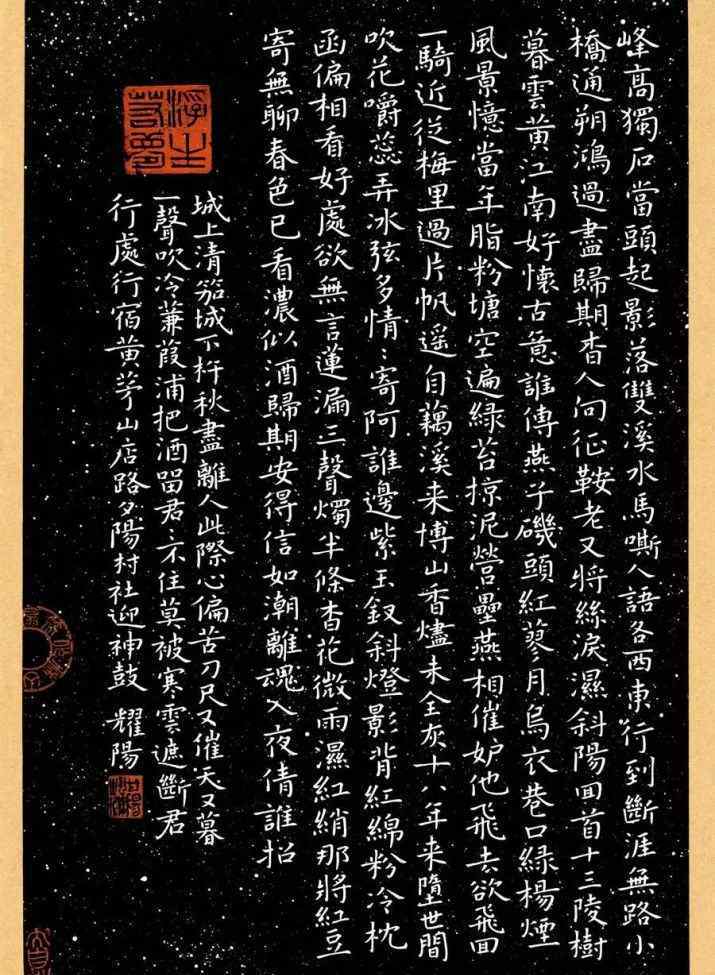 峰高獨石當頭起影落雙溪水馬嘶人語各西東行到斷涯無路小
橋通朔鴻過盡歸期杳人向征鞍老又將絲淚濕斜陽回首十三陵樹
暮雲黃江南好懷古意誰傳燕子磯頭紅蓼月烏衣巷口綠楊煙
風景憶當年脂粉塘空遍綠苔掠泥營壘燕相催妒他飛去欲飛回
一騎近從梅里過片帆遥自藕溪来博山香燼未全灰十八年来墮世間
吹花嚼蕊弄冰弦多情〻寄阿誰邊紫玉釵斜燈影背紅綿粉冷枕
函偏相看好處欲無言蓮漏三聲燭半條杏花微雨濕紅綃那將紅豆
寄無聊春色已看濃似酒歸期安得信如潮離魂入夜倩誰招
浮生若夢
城上清笳城下杵秋盡離人此際心偏苦刀尺又催天又暮
一聲吹冷蒹葭浦把酒留君〻不住莫被寒雲遮斷君
行處行宿黃茅山店路夕陽村社迎神鼓 耀陽